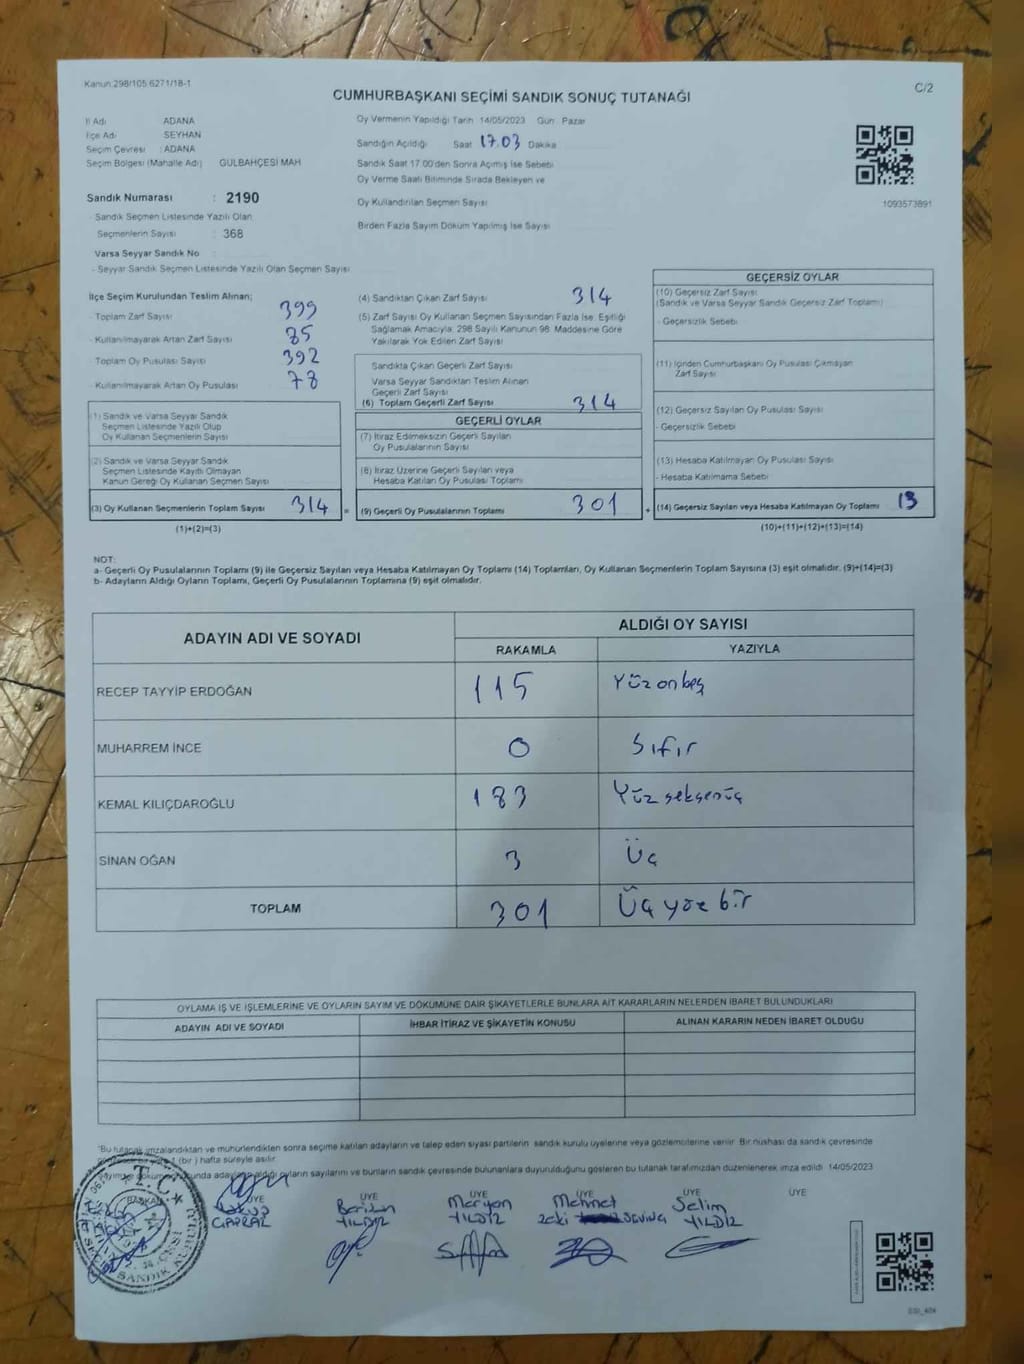 Kanun 298/105 6271/18-1
C/2
CUMHURBAŞKANI SEÇİMİ SANDIK SONUÇ TUTANAĞI
İl Adı ADANA
İlçe Adı SEYHAN
Seçim Çevresi : ADANA
Seçim Bölgesi (Mahalle Adı) GÜLBAHÇESİ MAH
Sandık Numarası : 2190
- Sandık Seçmen Listesinde Yazılı Olan
Seçmenlerin Sayısı : 368
Varsa Seyyar Sandık No
- Seyyar Sandık Seçmen Listesinde Yazılı Olan Seçmen Sayısı
Oy Vermenin Yapıldığı Tarih 14/05/2023 Gün: Pazar
Sandığın Açıldığı Saat 17.03 Dakika
Sandık Saat 17.00'den Sonra Açılmış İse Sebebi
Oy Verme Saati Bitiminde Sırada Bekleyen ve
Oy Kullandırılan Seçmen Sayısı
Birden Fazla Sayım Döküm Yapılmış İse Sayısı
1093573891
İlçe Seçim Kurulundan Teslim Alınan;
- Toplam Zarf Sayısı 399
- Kullanılmayarak Artan Zarf Sayısı 85
Toplam Oy Pusulası Sayısı 392
- Kullanılmayarak Artan Oy Pusulası 78
(1) Sandık ve Varsa Seyyar Sandık
Seçmen Listesinde Yazılı Olup
Oy Kullanan Seçmenlerin Sayısı
(2) Sandık ve Varsa Seyyar Sandık
Seçmen Listesinde Kayıtlı Olmayan
Kanun Gereği Oy Kullanan Seçmen Sayısı
(3) Oy Kullanan Seçmenlerin Toplam Sayısı 314 =
(1)+(2)=(3)
(4) Sandıktan Çıkan Zarf Sayısı 314
(5) Zarf Sayısı Oy Kullanan Seçmen Sayısından Fazla İse, Eşitliği
Sağlamak Amacıyla, 298 Sayılı Kanunun 98. Maddesine Göre
Yakılarak Yok Edilen Zarf Sayısı
Sandıkta Çıkan Geçerli Zarf Sayısı
Varsa Seyyar Sandıktan Teslim Alınan
Geçerli Zarf Sayısı
(6) Toplam Geçerli Zarf Sayısı 314
GEÇERLİ OYLAR
(7) İtiraz Edilmeksizin Geçerli Sayılan
Oy Pusulalarının Sayısı
(8) İtiraz Üzerine Geçerli Sayılan veya
Hesaba Katılan Oy Pusulası Toplamı
(9) Geçerli Oy Pusulalarının Toplamı 301 +
GEÇERSİZ OYLAR
(10) Geçersiz Zarf Sayısı
(Sandık ve Varsa Seyyar Sandık Geçersiz Zarf Toplamı)
- Geçersizlik Sebebi
(11) İçinden Cumhurbaşkanı Oy Pusulası Çıkmayan
Zarf Sayısı
(12) Geçersiz Sayılan Oy Pusulası Sayısı
- Geçersizlik Sebebi
(13) Hesaba Katılmayan Oy Pusulası Sayısı
- Hesaba Katılmama Sebebi
(14) Geçersiz Sayılan veya Hesaba Katılmayan Oy Toplamı 13
(10)+(11)+(12)+(13)=(14)
NOT:
a- Geçerli Oy Pusulalarının Toplamı (9) ile Geçersiz Sayılan veya Hesaba Katılmayan Oy Toplamı (14) Toplamları, Oy Kullanan Seçmenlerin Toplam Sayısına (3) eşit olmalıdır. (9)+(14)=(3)
b- Adayların Aldığı Oyların Toplamı, Geçerli Oy Pusulalarının Toplamına (9) eşit olmalıdır.
ADAYIN ADI VE SOYADI ALDIĞI OY SAYISI
RAKAMLA YAZIYLA
RECEP TAYYİP ERDOĞAN 115 Yüzonbeş
MUHARREM İNCE 0 Sıfır
KEMAL KILIÇDAROĞLU 183 Yüzseksenüç
SİNAN OĞAN 3 Üç
TOPLAM 301 Üçyüz bir
OYLAMA İŞ VE İŞLEMLERİNE VE OYLARIN SAYIM VE DÖKÜMÜNE DAİR ŞİKAYETLERLE BUNLARA AİT KARARLARIN NELERDEN İBARET BULUNDUKLARI
ADAYIN ADI VE SOYADI İHBAR İTİRAZ VE ŞİKAYETİN KONUSU ALINAN KARARIN NEDEN İBARET OLDUĞU
"Bu tutanak imzalandıktan ve mühürlendikten sonra seçime katılan adayların ve talep eden siyasi partilerin sandık kurulu üyelerine veya gözlemcilerine verilir. Bir nüshası da sandık çevresinde
1 (bir) hafta süreyle asılır.
aldığı oyların sayılarını ve bunların sandık çevresinde bulunanlara duyurulduğunu gösteren bu tutanak tarafımızdan düzenlenerek imza edildi. 14/05/2023
T.C.
BAŞKAN
SANDIK KURULU
ÜYE ÜYE ÜYE ÜYE ÜYE ÜYE
Meryem YILDIZ
Mehmet Zeki
Selim YILDIZ
YILDIZ